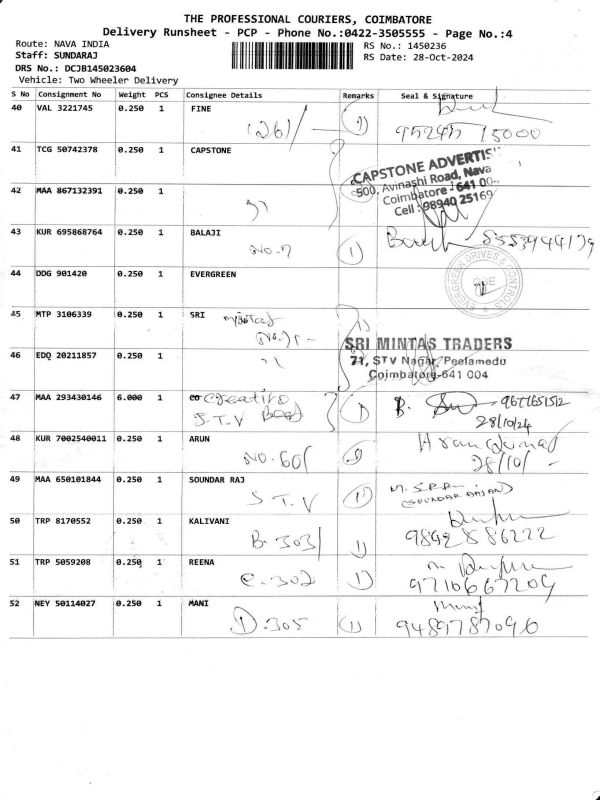 THE PROFESSIONAL COURIERS, COIMBATORE
Delivery Runsheet - PCP - Phone No.:0422-3505555 - Page No.:4
Route: NAVA INDIA
Staff: SUNDARAJ
DRS No.: DCJB145023604
Vehicle: Two Wheeler Delivery
RS No.: 1450236
RS Date: 28-Oct-2024
S No Consignment No Weight PCS Consignee Details Remarks Seal & Signature
40 VAL 3221745 0.250 1 FINE
95245 15000
41 TCG 50742378 0.250 1 CAPSTONE
CAPSTONE ADVERTIS
500, Avinashi Road, Nava
Coimbatore - 641 00
Cell : 98940 25169
42 MAA 867132391 0.250 1
43 KUR 695868764 0.250 1 BALAJI
No. 7 1
44 DDG 901420 0.250 1 EVERGREEN
EVERGREEN DRIVES & CONTROLS
CBE
45 MTP 3106339 0.250 1 SRI
SRI MINTAS TRADERS
71, STV Nagar, Peelamedu
Coimbatore-641 004
46 EDQ 20211857 0.250 1
47 MAA 293430146 6.000 1 creative
S.T.V 1 B. 9677651512
28/10/24
48 KUR 7002540011 0.250 1 ARUN
NO. 601
28/10/
49 MAA 650101844 0.250 1 SOUNDAR RAJ
S T.V
(SOUNDAR RAJAN)
50 TRP 8170552 0.250 1 KALIVANI
B. 303 1 98428 86222
51 TRP 5059208 0.250 1 REENA
C. 302 1 9710667209
52 NEY 50114027 0.250 1 MANI
D.305 1 9489787096